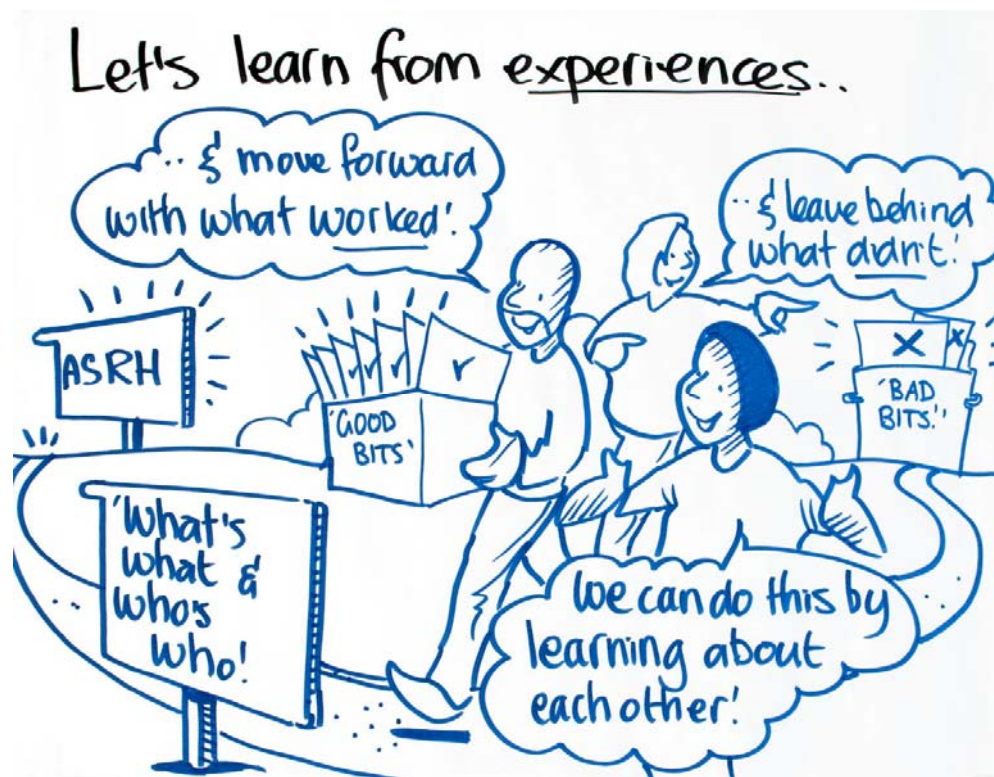 Let's learn from experiences..
.. & move forward
with what worked!
.. & leave behind
what didn't!
ASRH
'GOOD
BITS'
'BAD
BITS.'
'What's
what &
who's
who!
We can do this by
learning about
each other!